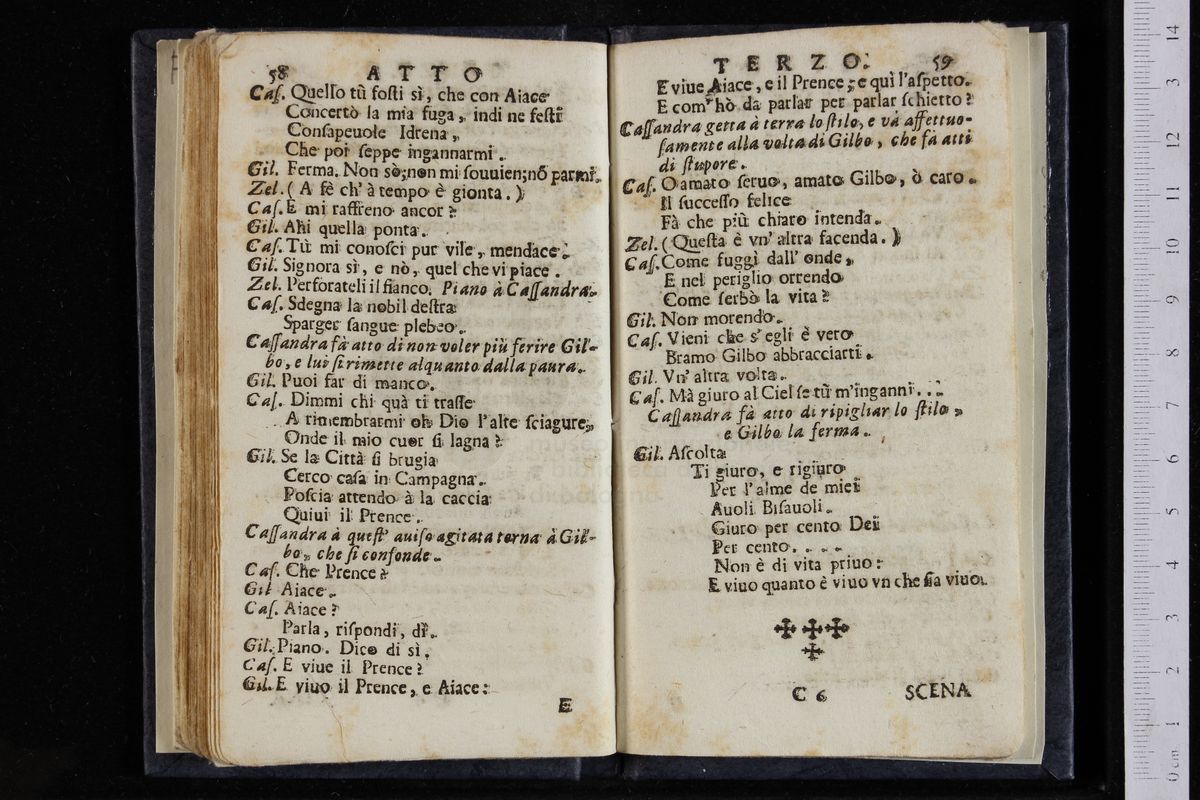 58 ATTO
Caſ. Quello tù foſti sì, che con Aiace
Concertò la mia fuga, indi ne feſti
Conſapeuole Idrena,
Che poi ſeppe ingannarmi.
Gil. Ferma. Non sò; non mi ſouuien; nō parmi.
Zel. ( A fè ch' à tempo è gionta. )
Caſ. E mi raffreno ancor?
Gil. Ahi quella ponta.
Caſ. Tù mi conoſci pur vile, mendace.
Gil. Signora sì, e nò, quel che vi piace.
Zel. Perforateli il fianco. Piano à Caſſandra.
Caſ. Sdegna la nobil deſtra
Sparger ſangue plebeo.
Caſſandra fà atto di non voler più ferire Gil-
bo, e lui ſi rimette alquanto dalla paura.
Gil. Puoi far di manco.
Caſ. Dimmi chi quà ti traſſe
A rimembrarmi oh Dio l'alte ſciagure,
Onde il mio cuor ſi lagna?
Gil. Se la Città ſi brugia
Cerco caſa in Campagna.
Poſcia attendo à la caccia
Quiui il Prence.
Caſſandra à queſt' auiſo agitata torna à Gil-
bo, che ſi confonde.
Caſ. Che Prence?
Gil Aiace.
Caſ. Aiace?
Parla, riſpondi, dì.
Gil. Piano. Dico di sì.
Caſ. E viue il Prence?
Gil. E viuo il Prence, e Aiace:
E
TERZO. 59
E viue Aiace, e il Prence; e quì l'aſpetto.
E com' hò da parlar per parlar ſchietto?
Caſſandra getta à terra lo ſtilo, e và affettuo-
ſamente alla volta di Gilbo, che fà atti
di ſtupore.
Caſ. O amato ſeruo, amato Gilbo, ò caro.
Il ſucceſſo felice
Fà che più chiaro intenda.
Zel. (Queſta è vn' altra facenda. )
Caſ. Come fuggì dall' onde,
E nel periglio orrendo
Come ſerbò la vita?
Gil. Non morendo.
Caſ. Vieni che s' egli è vero
Bramo Gilbo abbracciarti.
Gil. Vn' altra volta.
Caſ. Mà giuro al Ciel ſe tù m'inganni...
Caſſandra fà atto di ripigliar lo ſtilo,
e Gilbo la ferma.
Gil. Aſcolta
Ti giuro, e rigiuro
Per l'alme de miei
Auoli Biſauoli.
Giuro per cento Dei
Per cento. . . .
Non è di vita priuo:
E viuo quanto è viuo vn che ſia viuo.
C 6 SCENA